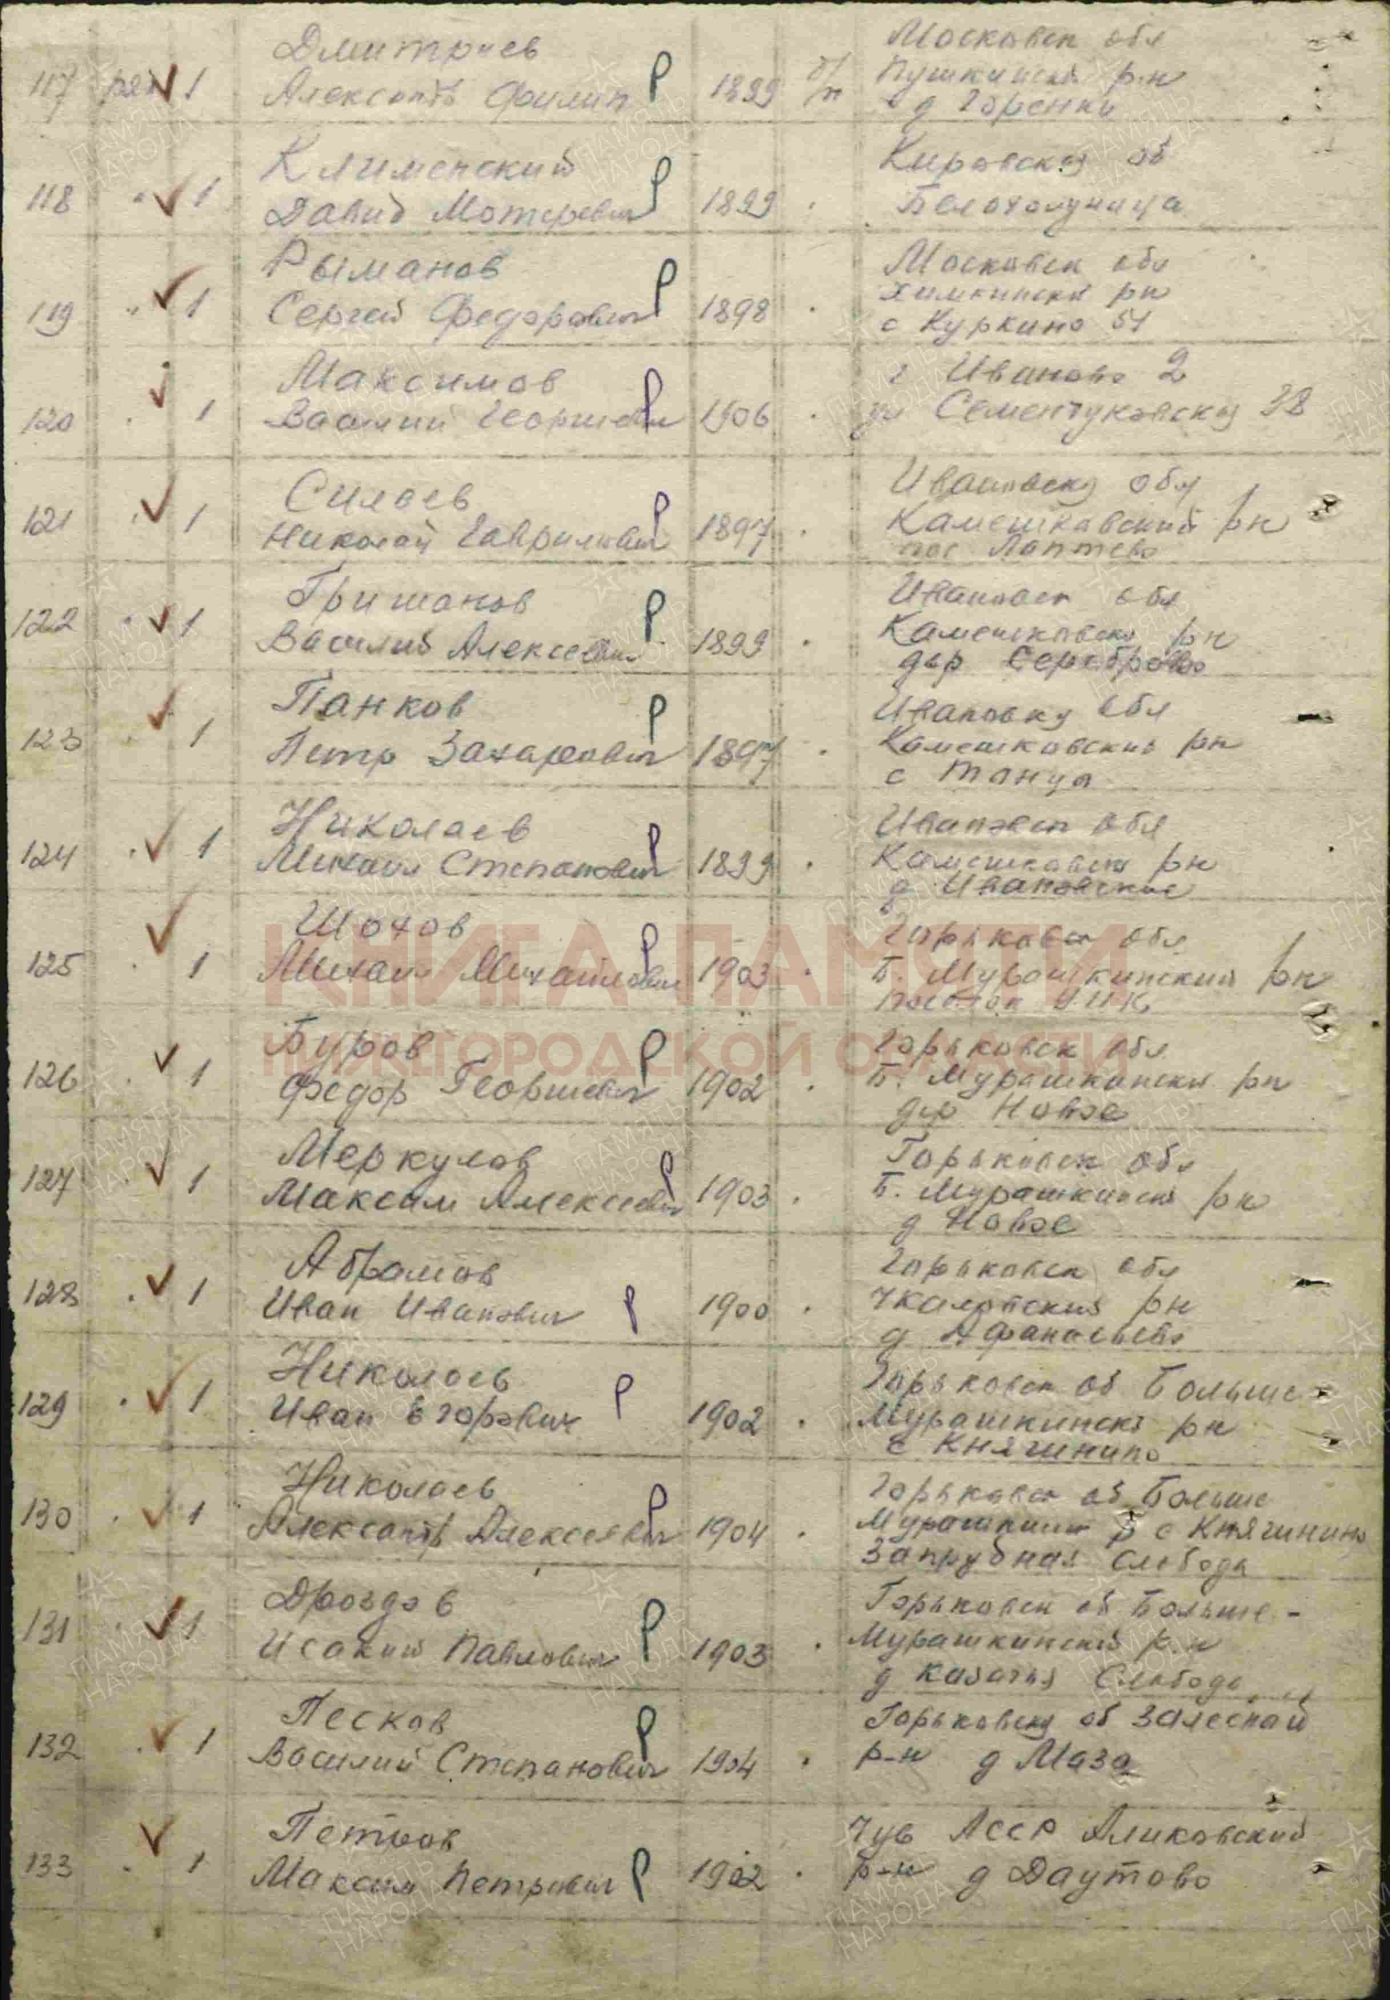 Дмитриев
117 ряд 1 Александр Филип 1899 б/п
Московск обл
Пушкинский р-н
д Горенки
Клименский
118 1 Давид Мотеревич 1899
Кировской об
Белохолуница
Рыманов
119 1 Сергей Федорович 1898
Московск обл
Химкинский рн
с Куркино 51
Максимов
120 1 Василий Георгиевич 1906
г Иваново 2
ул 38
Силаев
121 1 Николай Гаврилович 1897
Ивановску обл
Камешкавский рн
пос Лаптево
Гришанов
122 1 Василий Алексеевич 1899
Ивановск обл
Камешковско рн
дер Сереброво
Панков
123 1 Петр Захарович 1897
Ивановку обл
Камешковский рн
с
Николаев
124 1 Михаил Степанович 1899
Ивановск обл
Камешковск рн
д Ивановское
Шохов
125 1 Михаил Михайлович 1903
Горьковск обл
Б. Мурашкинский рн
КНИГА ПАМЯТИ
НИЖЕГОРОДСКОЙ ОБЛАСТИ
Буров
126 1 Федор Георгиевич 1902
Горьковск обл
Б. Мурашкинский рн
дер Новое
Меркулов
127 1 Максим Алексеевич 1903
Горьковск обл
Б. Мурашкинск рн
д Новое
Абрамов
128 1 Иван Иванович 1900
Горьковск обл
Чкаловский рн
д Афанасьево
Николаев
129 1 Иван Егорович 1902
Горьковск об Больше
Мурашкинск рн
с Княгинино
Николаев
130 1 Александр Алексеевич 1904
Горьковск об Больше
Мурашкинск р с Княгинино
Запрудная Слобода
Дроздов
131 1 Исакий Павлович 1903
Горьковск об Больше-
Мурашкинский р-н
д Казачья Слобода
Песков
132 1 Василий Степанович 1904
Горьковску об Залесной
р-н д Маза
Петров
133 1 Максим Петрович 1902
Чув АССР Аликовский
р-н д Даутово